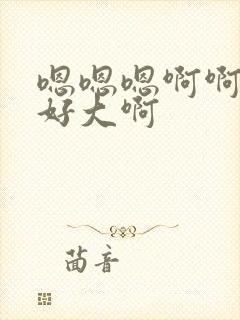 嗯嗯嗯啊啊
好大啊
茴音